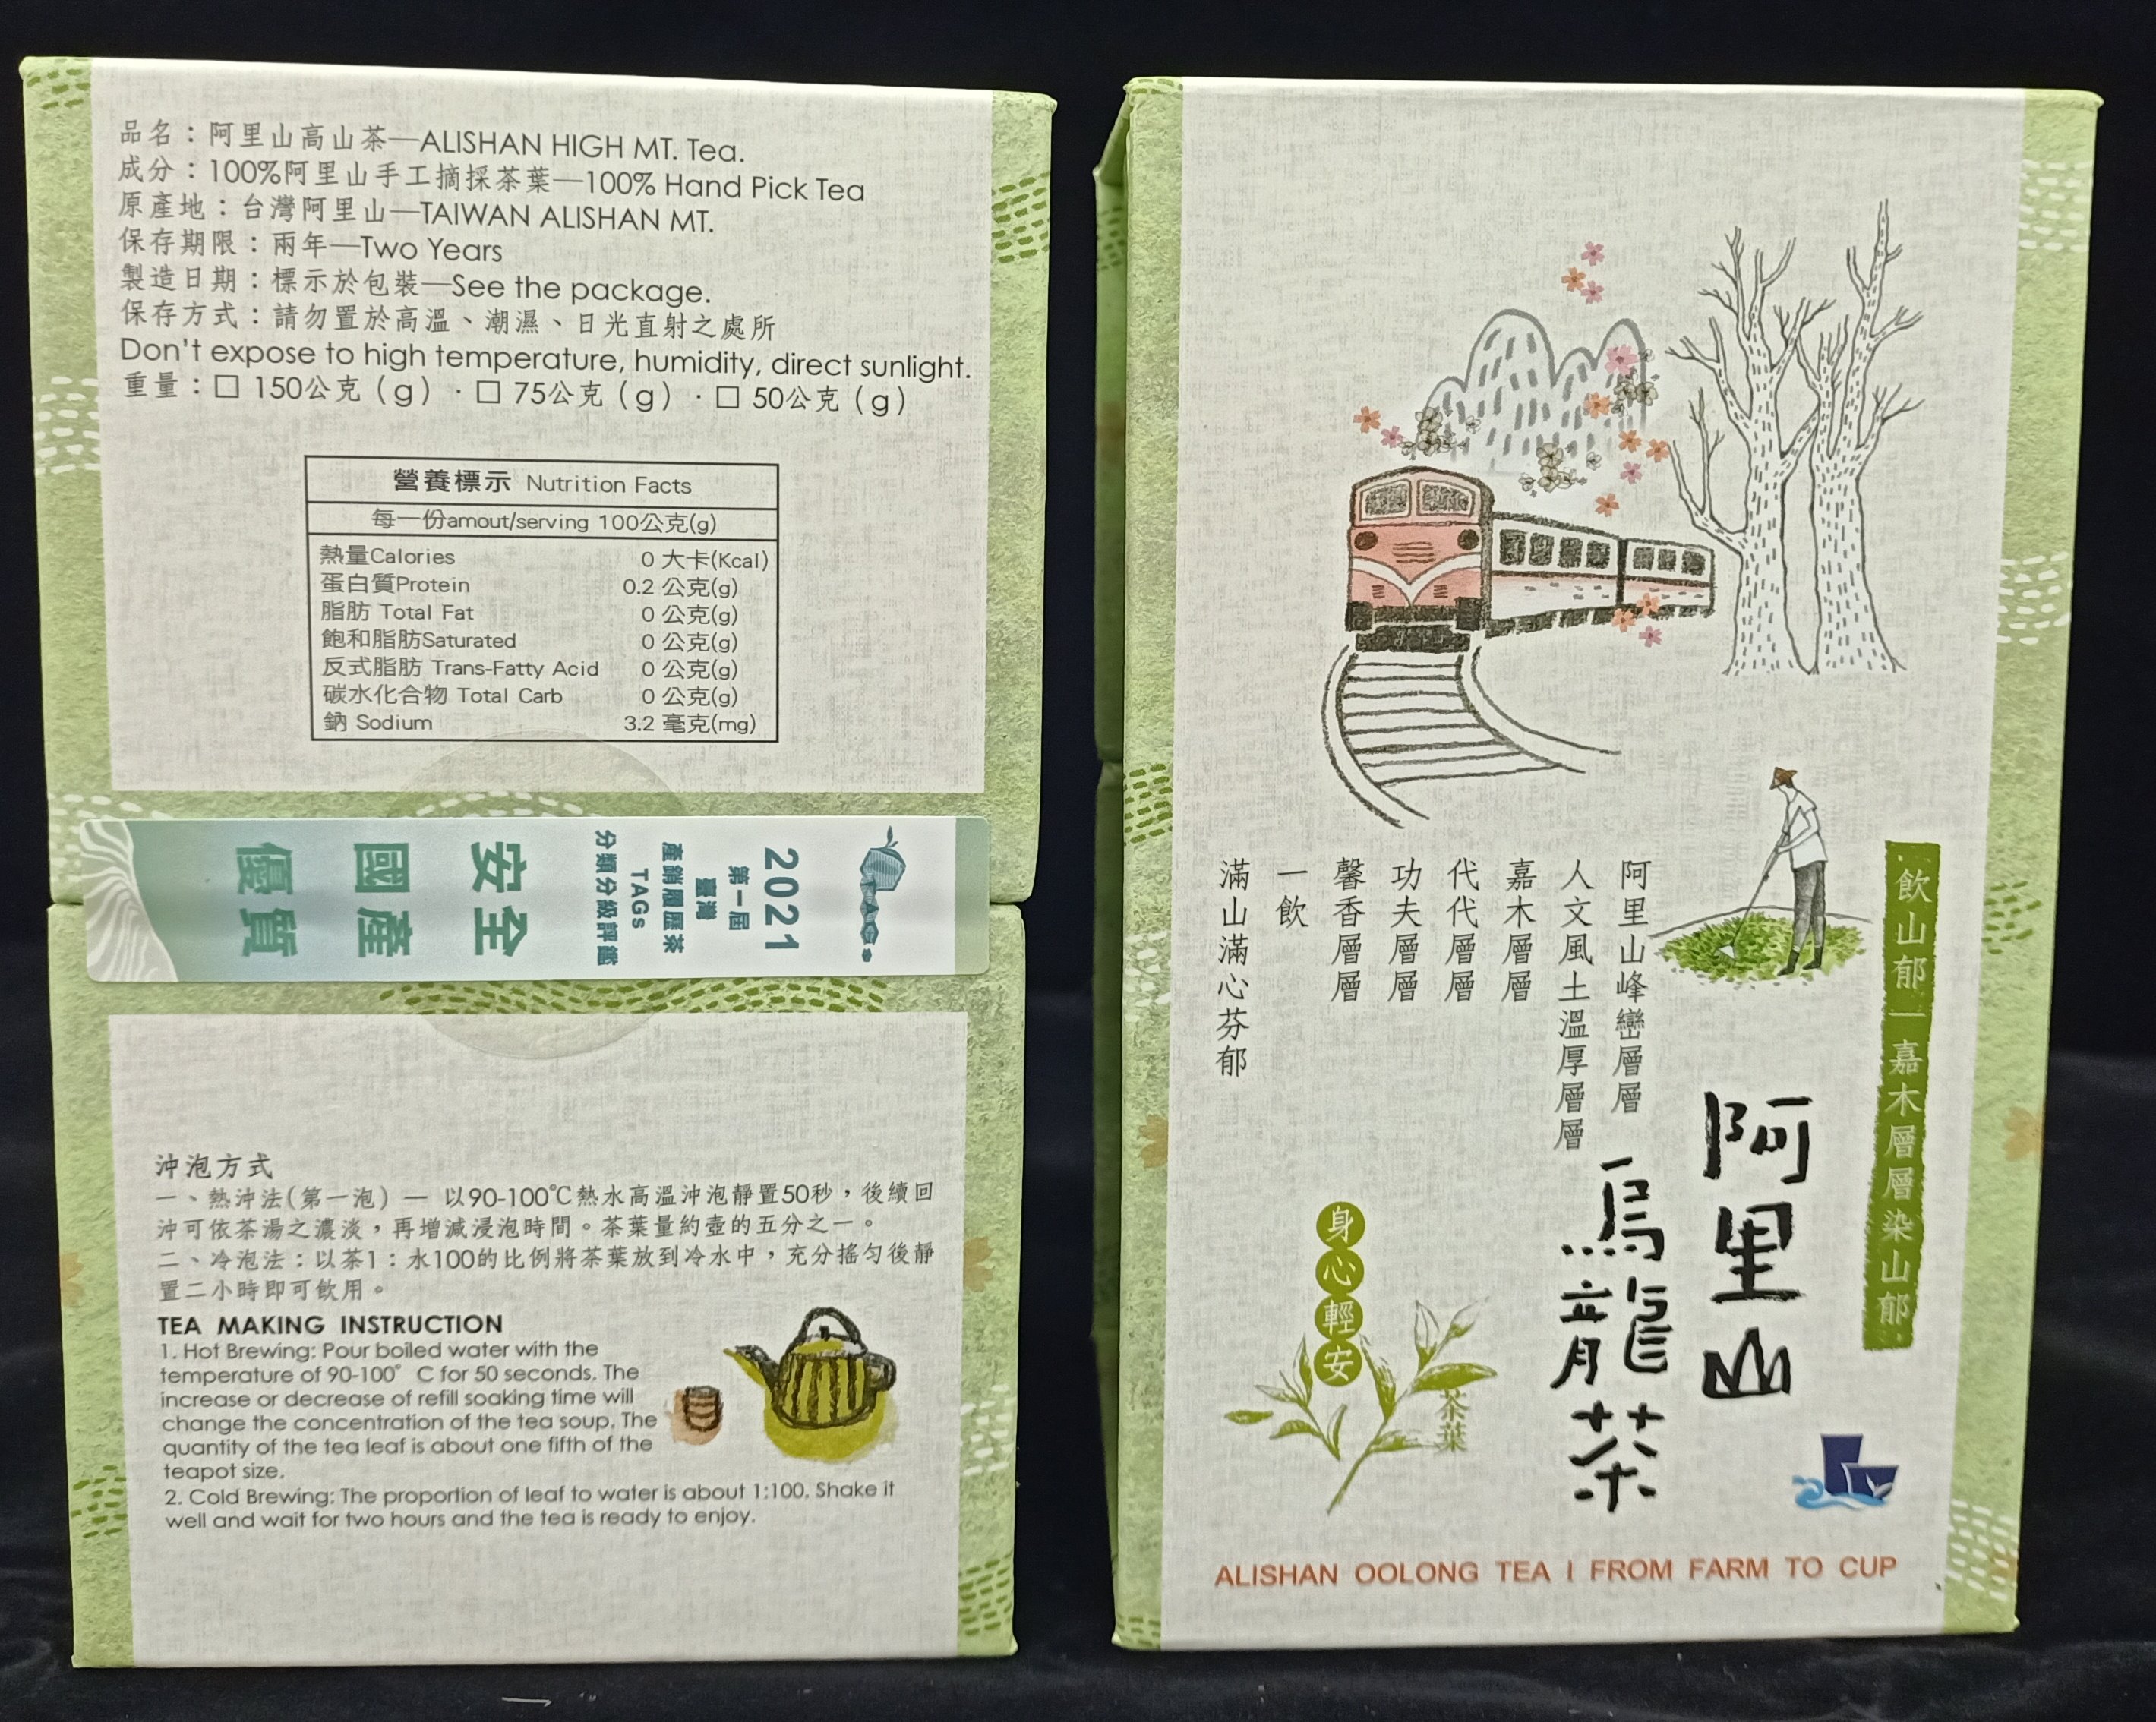 品名：阿里山高山茶—ALISHAN HIGH MT. Tea.
成分：100%阿里山手工摘採茶葉—100% Hand Pick Tea
原產地：台灣阿里山—TAIWAN ALISHAN MT.
保存期限：兩年—Two Years
製造日期：標示於包裝—See the package.
保存方式：請勿置於高溫、潮濕、日光直射之處所
Don't expose to high temperature, humidity, direct sunlight.
重量：□ 150公克（g）·□ 75公克（g）·□ 50公克（g）
營養標示 Nutrition Facts
每一份amout/serving 100公克(g)
熱量Calories 0 大卡(Kcal)
蛋白質Protein 0.2 公克(g)
脂肪 Total Fat 0 公克(g)
飽和脂肪Saturated 0 公克(g)
反式脂肪 Trans-Fatty Acid 0 公克(g)
碳水化合物 Total Carb 0 公克(g)
鈉 Sodium 3.2 毫克(mg)
TAGs
2021
第一屆
臺灣
產銷履歷茶
TAGs
分類分級評鑑
安全
國產
優質
沖泡方式
一、熱沖法(第一泡) — 以90-100℃熱水高溫沖泡靜置50秒，後續回
沖可依茶湯之濃淡，再增減浸泡時間。茶葉量約壺的五分之一。
二、冷泡法：以茶1：水100的比例將茶葉放到冷水中，充分搖勻後靜
置二小時即可飲用。
TEA MAKING INSTRUCTION
1. Hot Brewing: Pour boiled water with the
temperature of 90-100° C for 50 seconds. The
increase or decrease of refill soaking time will
change the concentration of the tea soup. The
quantity of the tea leaf is about one fifth of the
teapot size.
2. Cold Brewing: The proportion of leaf to water is about 1:100. Shake it
well and wait for two hours and the tea is ready to enjoy.
飲山郁｜嘉木層層染山郁
阿里山
烏龍茶
阿里山峰巒層層
人文風土溫厚層層
嘉木層層
代代層層
功夫層層
馨香層層
一飲
滿山滿心芬郁
身心輕安
茶葉
ALISHAN OOLONG TEA | FROM FARM TO CUP